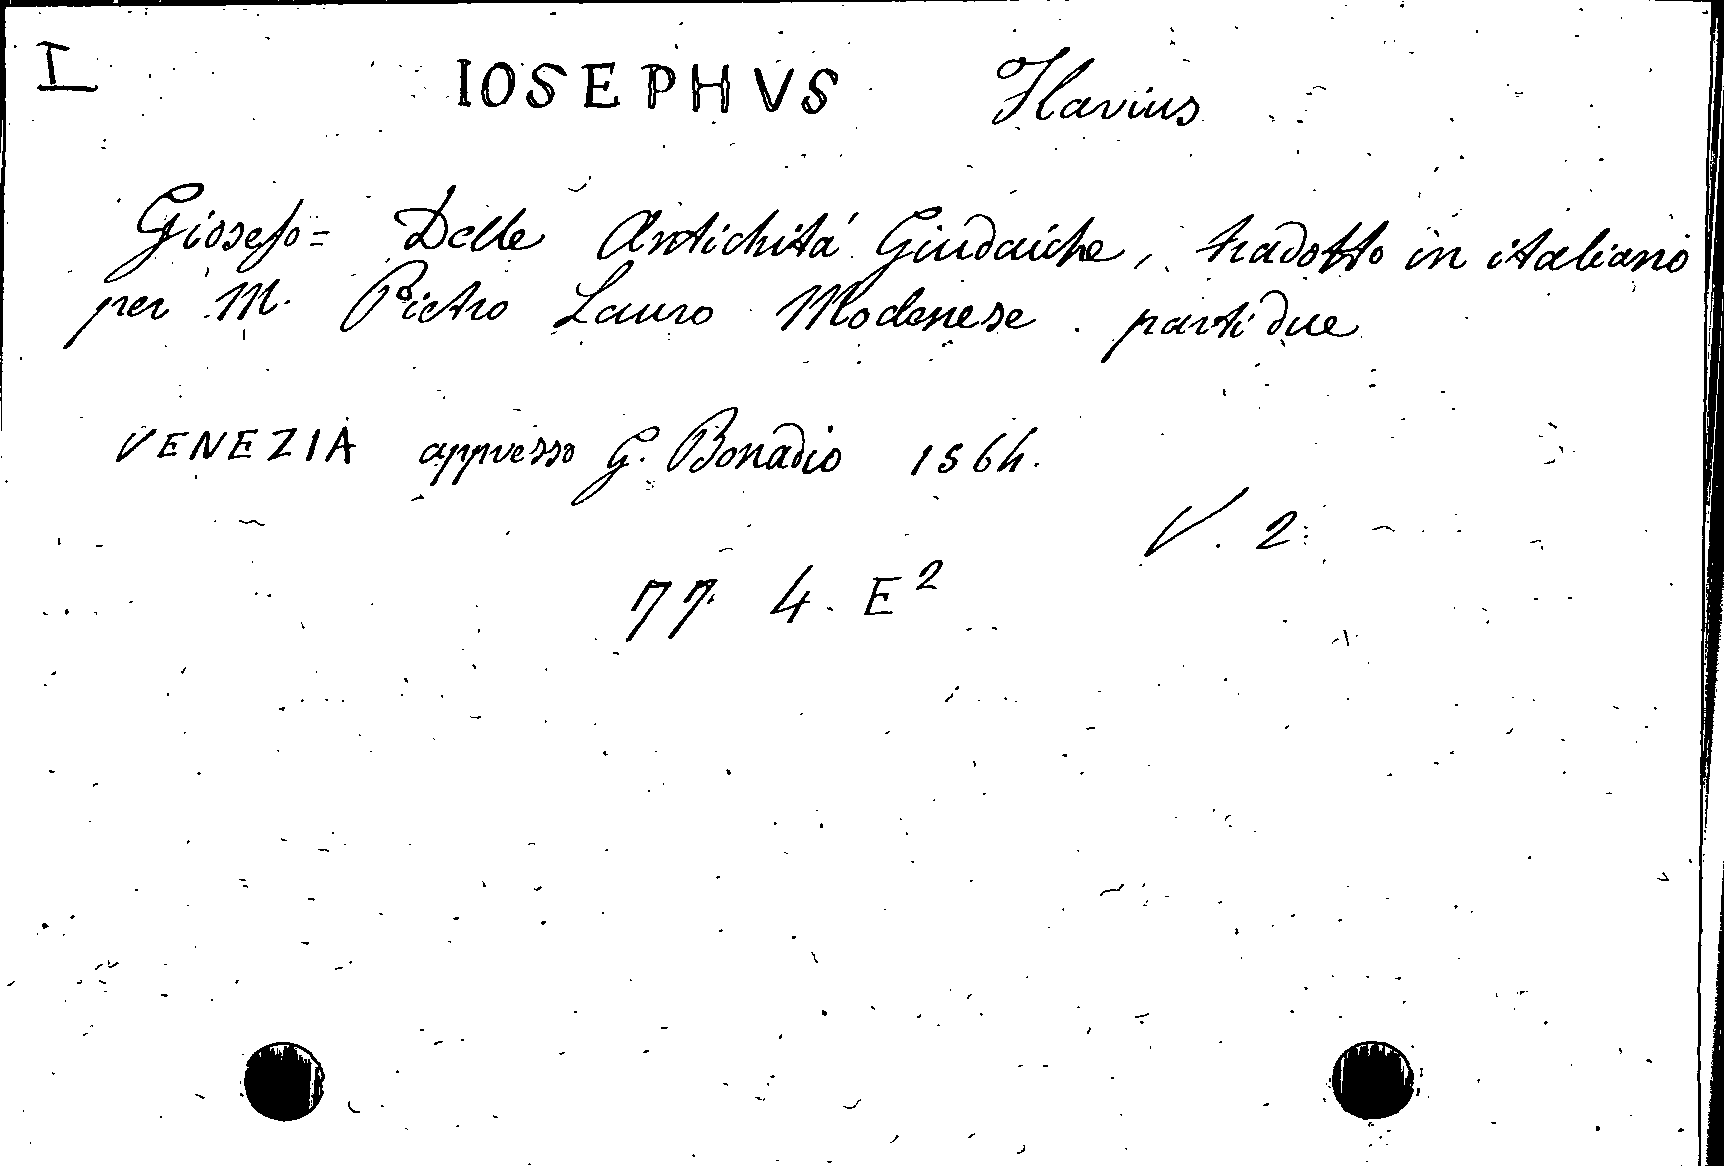 I IOSEPHVS Flavius
Giosefo= Delle Antichitá Giudaiche, tradotto in italiano
per M. Pietro Lauro Modenese. parti due
VENEZIA appresso G. Bonadio 1564.
V. 2
77. 4. E²